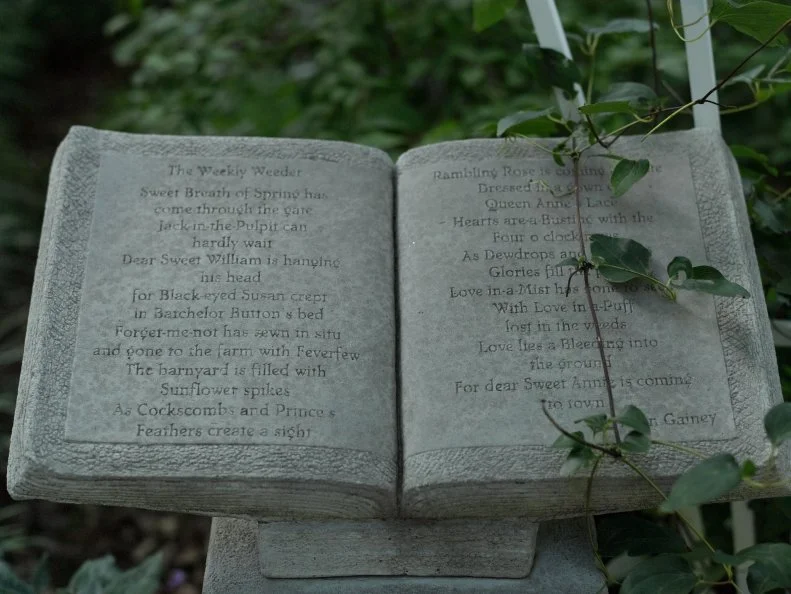 The Weekly Weeder
Sweet Breath of Spring has
come through the gate
Jack-in-the-Pulpit can
hardly wait
Dear Sweet William is hanging
his head
for Black-eyed Susan crept
in Batchelor Button's bed
Forget-me-not has sewn in situ
and gone to the farm with Feverfew
The barnyard is filled with
Sunflower spikes
As Cockscombs and Prince's
Feathers create a sight
Rambling Rose is coming
Dressed in a gown
Queen Anne's Lace
Hearts-are-a-Busting with the
Four o'clock
As Dewdrops and
Glories fill
Love-in-a-Mist has gone to
With Love-in-a-Puff
lost in the weeds
Love-lies-a-Bleeding into
the ground
For dear Sweet Annie is coming
to town
Gainey